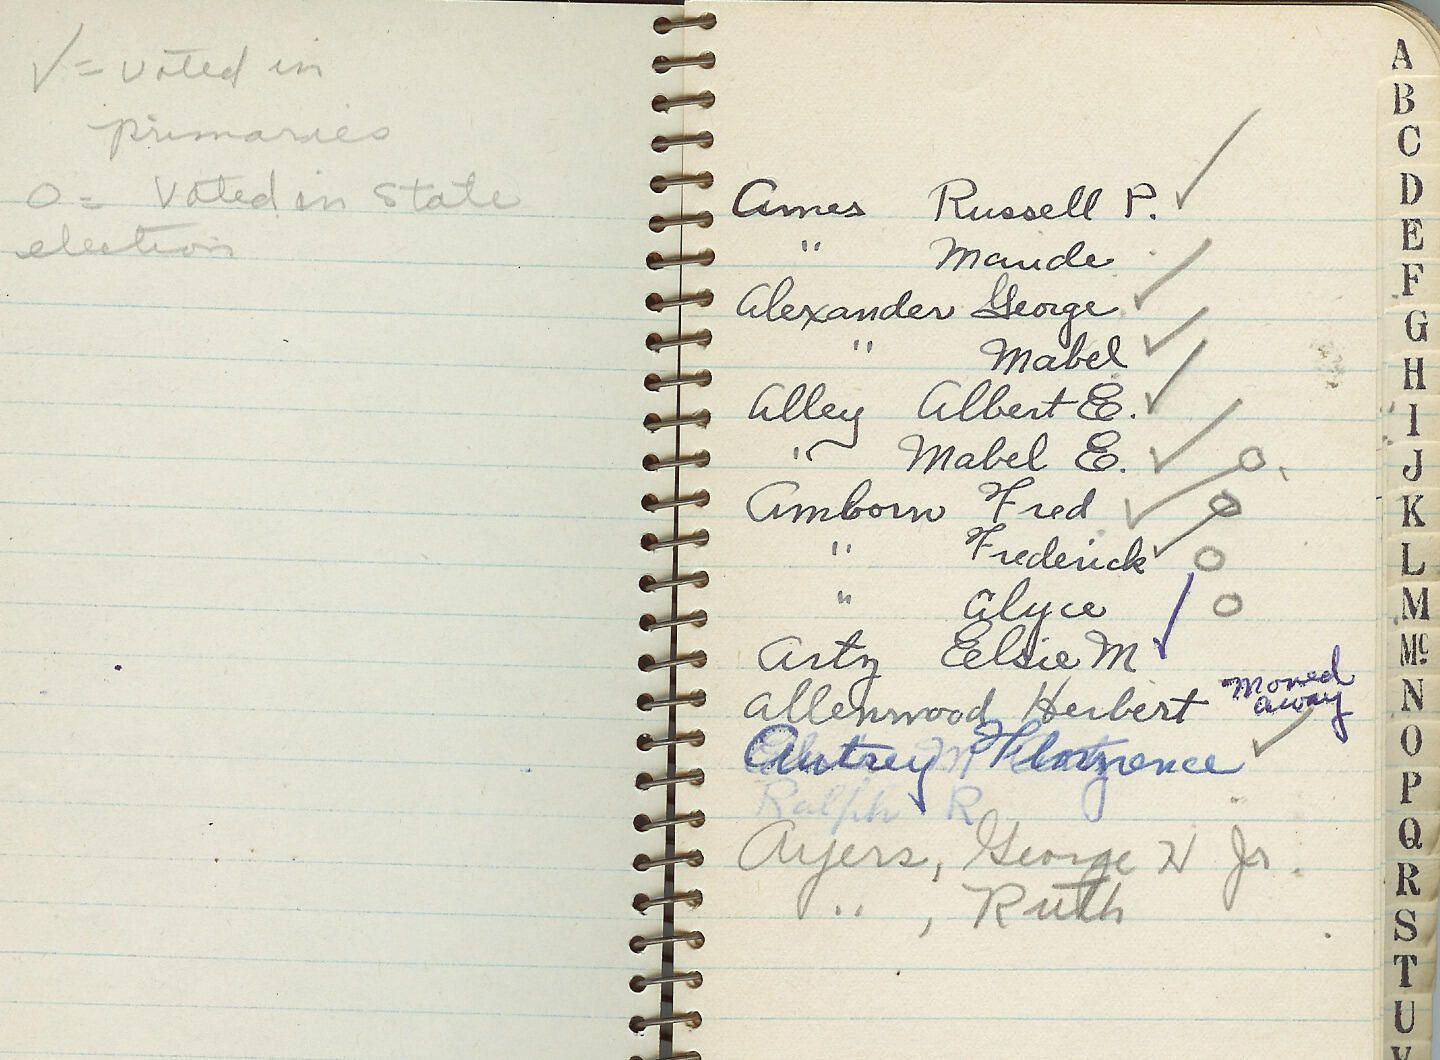 ✓ = voted in
primaries
O = Voted in State
election
Ames Russell P. ✓
" Maude
Alexander George ✓
" Mabel ✓
Alley Albert E. ✓
" Mabel E. ✓ O
Amborn Fred ✓ O
" Frederick ✓ O
" Alyce O
Arty Elsie M ✓
Allenwood Herbert Moved away
Autrey Florence ✓
Ralph R
Ayers, George W Jr.
" , Ruth
A
B
C
D
E
F
G
H
I
J
K
L
M
Mc
N
O
P
Q
R
S
T
U